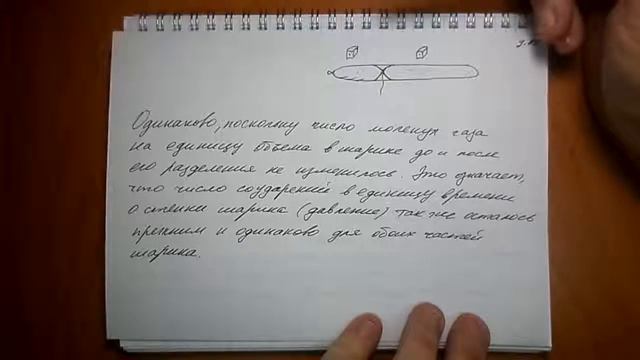 Одинаково, поскольку число молекул газа
на единицу объема в шарике до и после
его разделения не изменилось. Это означает,
что число соударений в единицу времени
о стенки шарика (давление) так же осталось
прежним и одинаково для обоих частей
шарика.